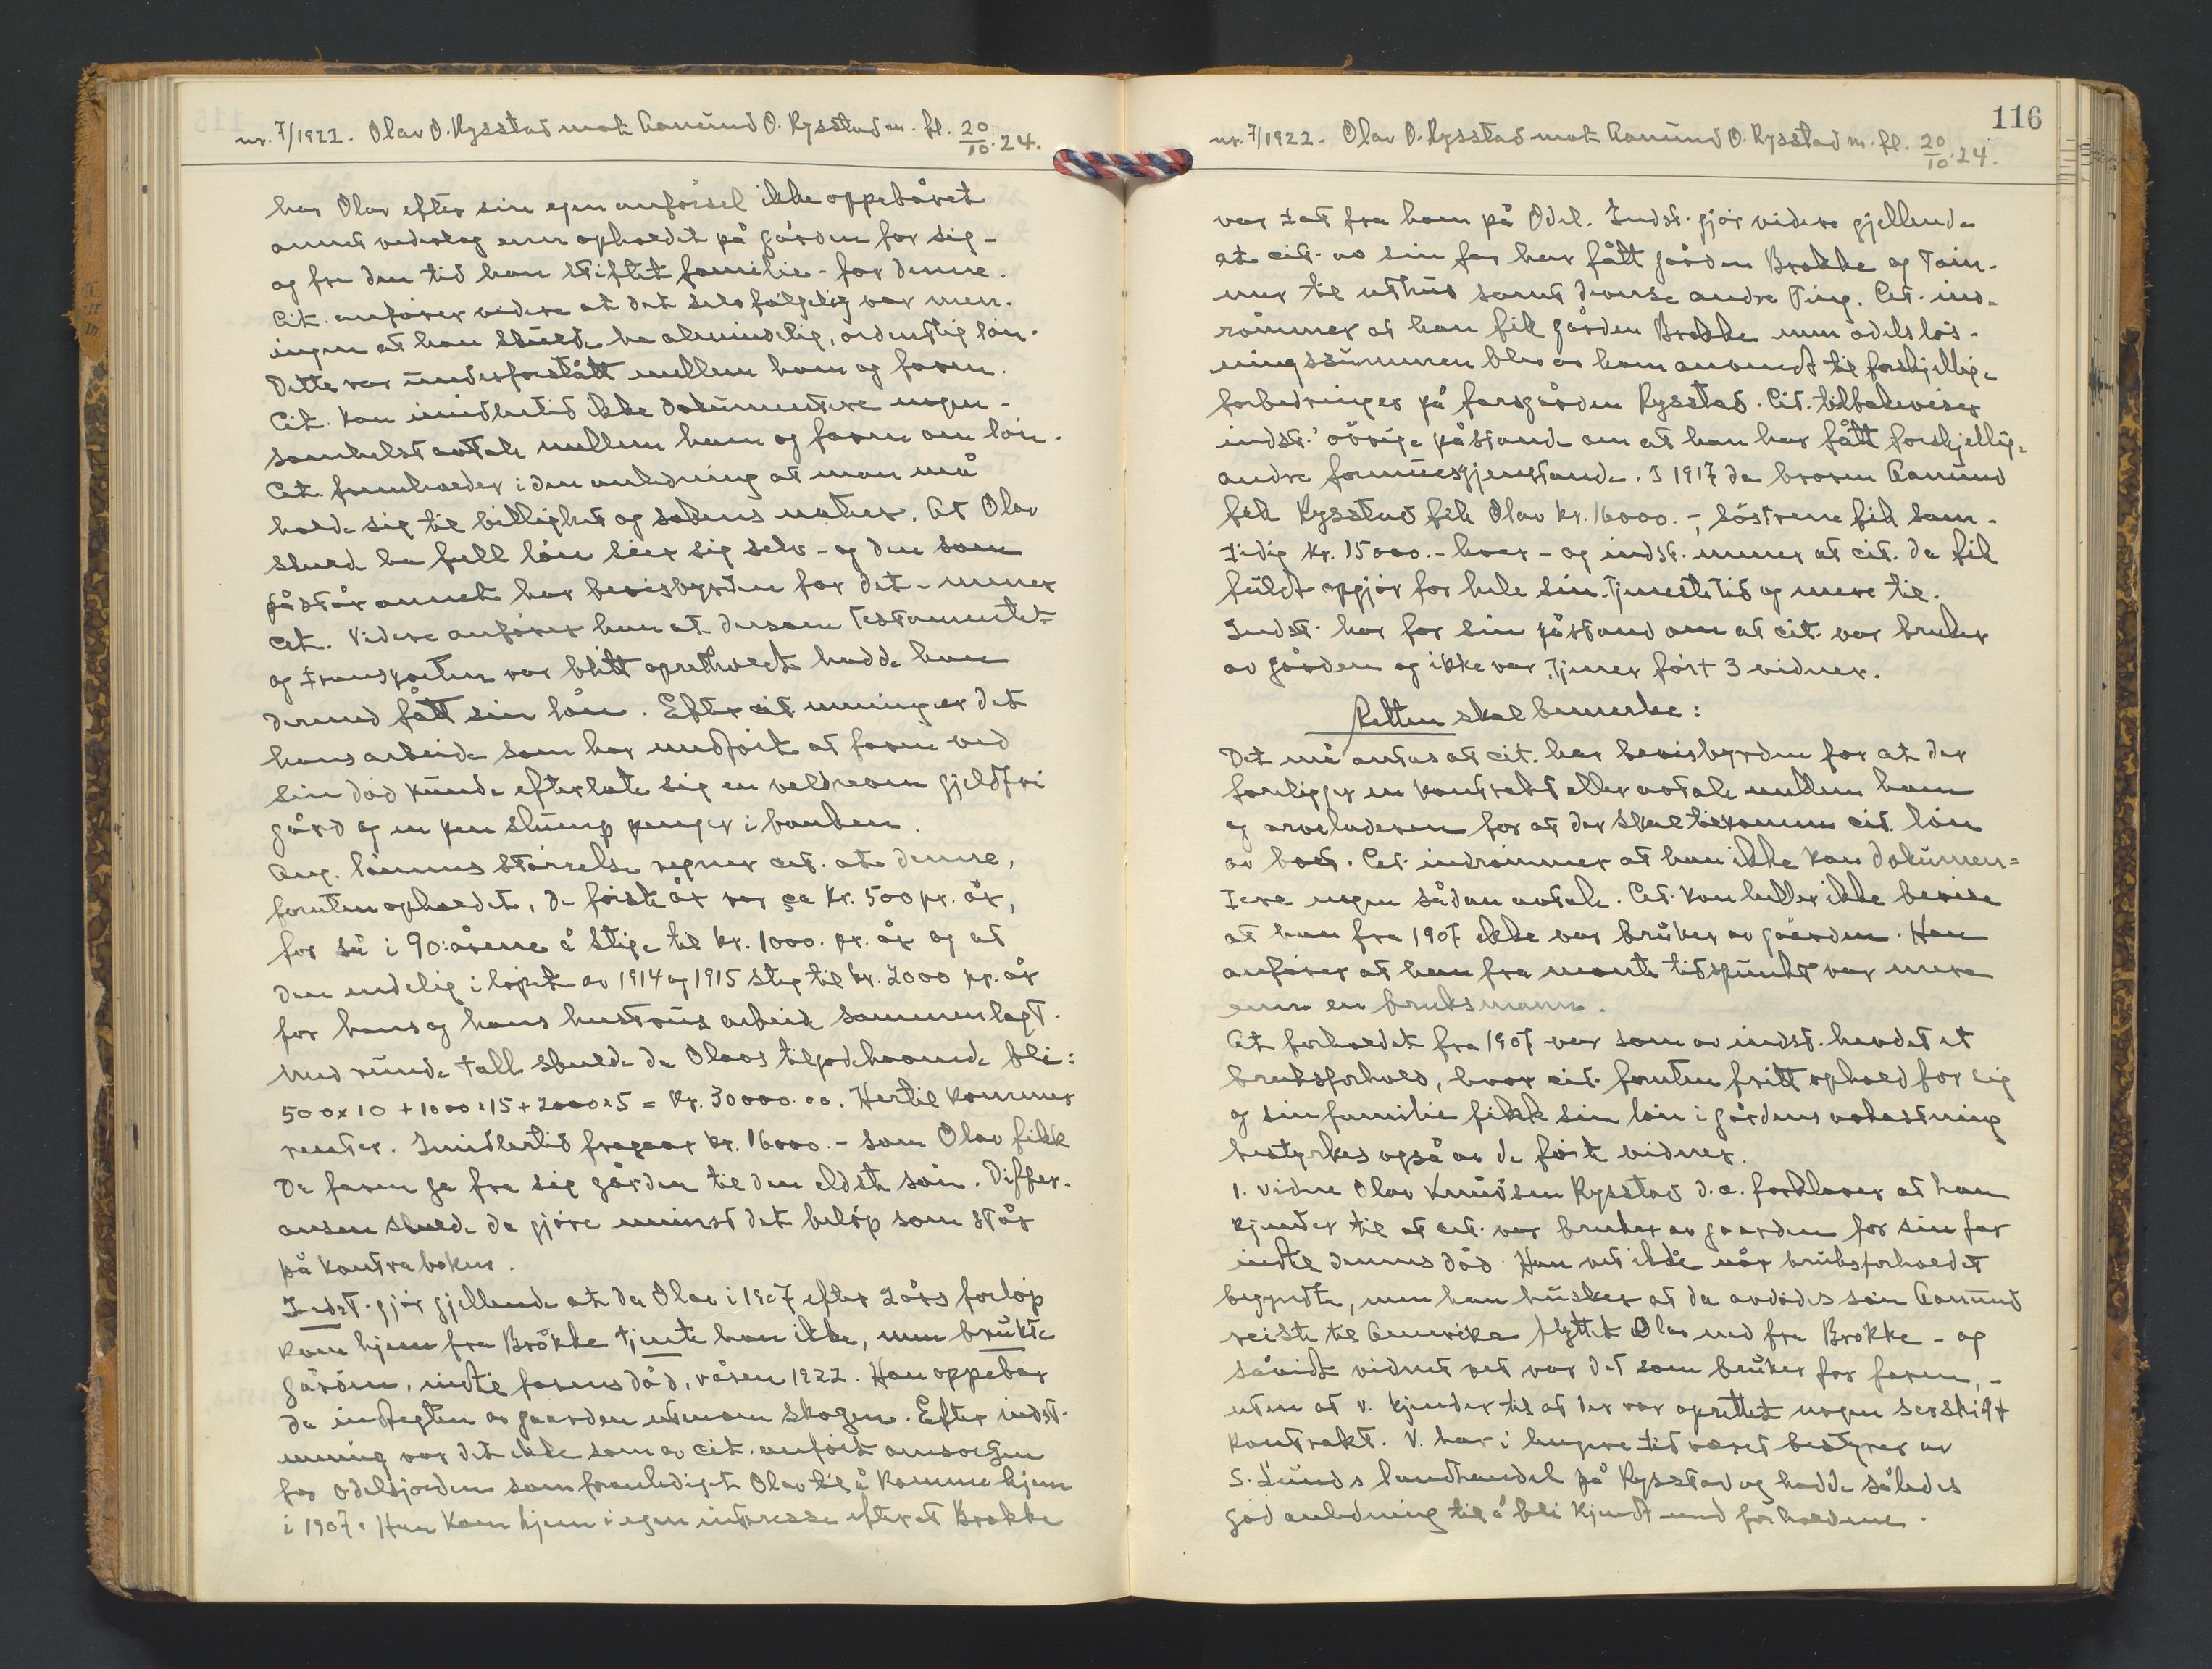 nr. 7/1922. Olav O. Rysstad mot Aamund O. Rysstad m. fl. 20/10.24.
har Olav efter sin egen anførsel ikke oppebåret
annet vederlag enn opholdet på gården for sig -
og fra den tid han stiftet familie - for denne.
Cit. anfører videre at det selvfølgelig var men-
ingen at han skulde ha almindelig, ordentlig løn.
Dette var underforstått mellem ham og faren.
Cit. kan imidlertid ikke dokumentere nogen-
somhelst avtale mellem ham og faren om løn.
Cit. fremholder i den anledning at man må
holde sig til billighet og sakens natur. At Olav
skuld ha full løn sier sig selv - og den som
påstår annet har bevisbyrden for det - mener
cit. Videre anfører han at dersom testamentet
og transporten var blitt oprettholdt hadde han
dermed fått sin løn. Efter cit mening er det
hans arbeide som har medført at faren ved
sin død kunde efterlate sig en veldreven gjeldfri
gård og en pen slump penger i banken.
Ang. lønnens størrelse regner cit. at denne,
foruten opholdet, de første år var ca kr. 500 pr. år,
for så i 90:årene å stige til kr. 1000. pr. år og at
den endelig i løpet av 1914 og 1915 steg til kr. 2000 pr. år
for hans og hans hustrus arbeide sammenlagt.
Med runde tall skulde da Olavs tilgodehavende bli:
500 x 10 + 1000 x 15 + 2000 x 5 = kr. 30000.00. Hertil kommer
renter. Imidlertid fragaar kr. 16000.- som Olav fikk
da faren ga fra sig gården til den eldste søn. Differ-
ansen skulde da gjøre minst det beløp som står
på kontrabøken.
Indst. gjør gjellende at da Olav i 1907 efter 2 års forløp
kom hjem fra Brokke tjente han ikke, men brukte
gården, indtil farens død, våren 1922. Han oppebar
da indtegten av gaarden utenom skogen. Efter indst.
mening var det ikke som av cit. anført omsorgen
for odelsjorden som foranlediget Olav til å komme hjem
i 1907. Han kom hjem i egen interesse efterat Brokke
116
nr. 7/1922. Olav O. Rysstad mot Aamund O. Rysstad m. fl. 20/10.24.
var tat fra ham på Odel. Indst. gjør videre gjellende
at cit. av sin far har fått gården Brokke og tøm-
mer til uthus samt diverse andre ting. Cit. ind-
rømmer at han fik gården Brokke men odelsløs-
ningssummen blev av ham anvendt til forskjellige
forbedringer på farsgården Rysstad. Cit. tilbakeviser
indst.' øvrige påstande om at han har fått forskjellige
andre formuesgjenstande. I 1917 da broren Aamund
fik Rysstad fik Olav kr. 16000.-, søstrene fik sam-
tidig kr. 15000.- hver - og indst. mener at cit. da fik
fuldt opgjør for hele sin tjenestetid og mere til.
Indst. har for sin påstand om at cit. var bruker
av gården og ikke var tjener ført 3 vidner.
Retten skal bemerke:
Det må antas at cit. har bevisbyrden for at der
foreligger en kontrakt eller avtale mellem ham
og arveladeren for at der skal tilkomme cit. løn
av boet. Cit. indrømmer at han ikke kan dokumen=
tere nogen sådan avtale. Cit. kan heller ikke bevise
at han fra 1907 ikke var bruker av gaarden. Han
anfører at han fra nevnte tidspunkt var mere
enn en bruksmann.
At forholdet fra 1907 var som av indst. hevdet et
bruksforhold, hvor cit. foruten fritt ophold for sig
og sin familie fikk sin løn i gårdens avkastning
bestyrkes også av de førte vidner.
1. vidne Olav Knudsen Rysstad d.e. forklarer at han
kjender til at cit. var bruker av gaarden for sin far
indtil dennes død. Han vet ikke når bruksforholdet
begyndte, men han husker at da avdødes søn Aamund
reiste til Amerika flyttet Olav ned fra Brokke - og
såvidt vidnet vet var det som bruker for faren, -
uten at v. kjender til at der var oprettet nogen særskilt
kontrakt. V. har i lengere tid været bestyrer av
S. Lunds landhandel på Rysstad og hadde således
god anledning til å bli kjendt med forholdene.